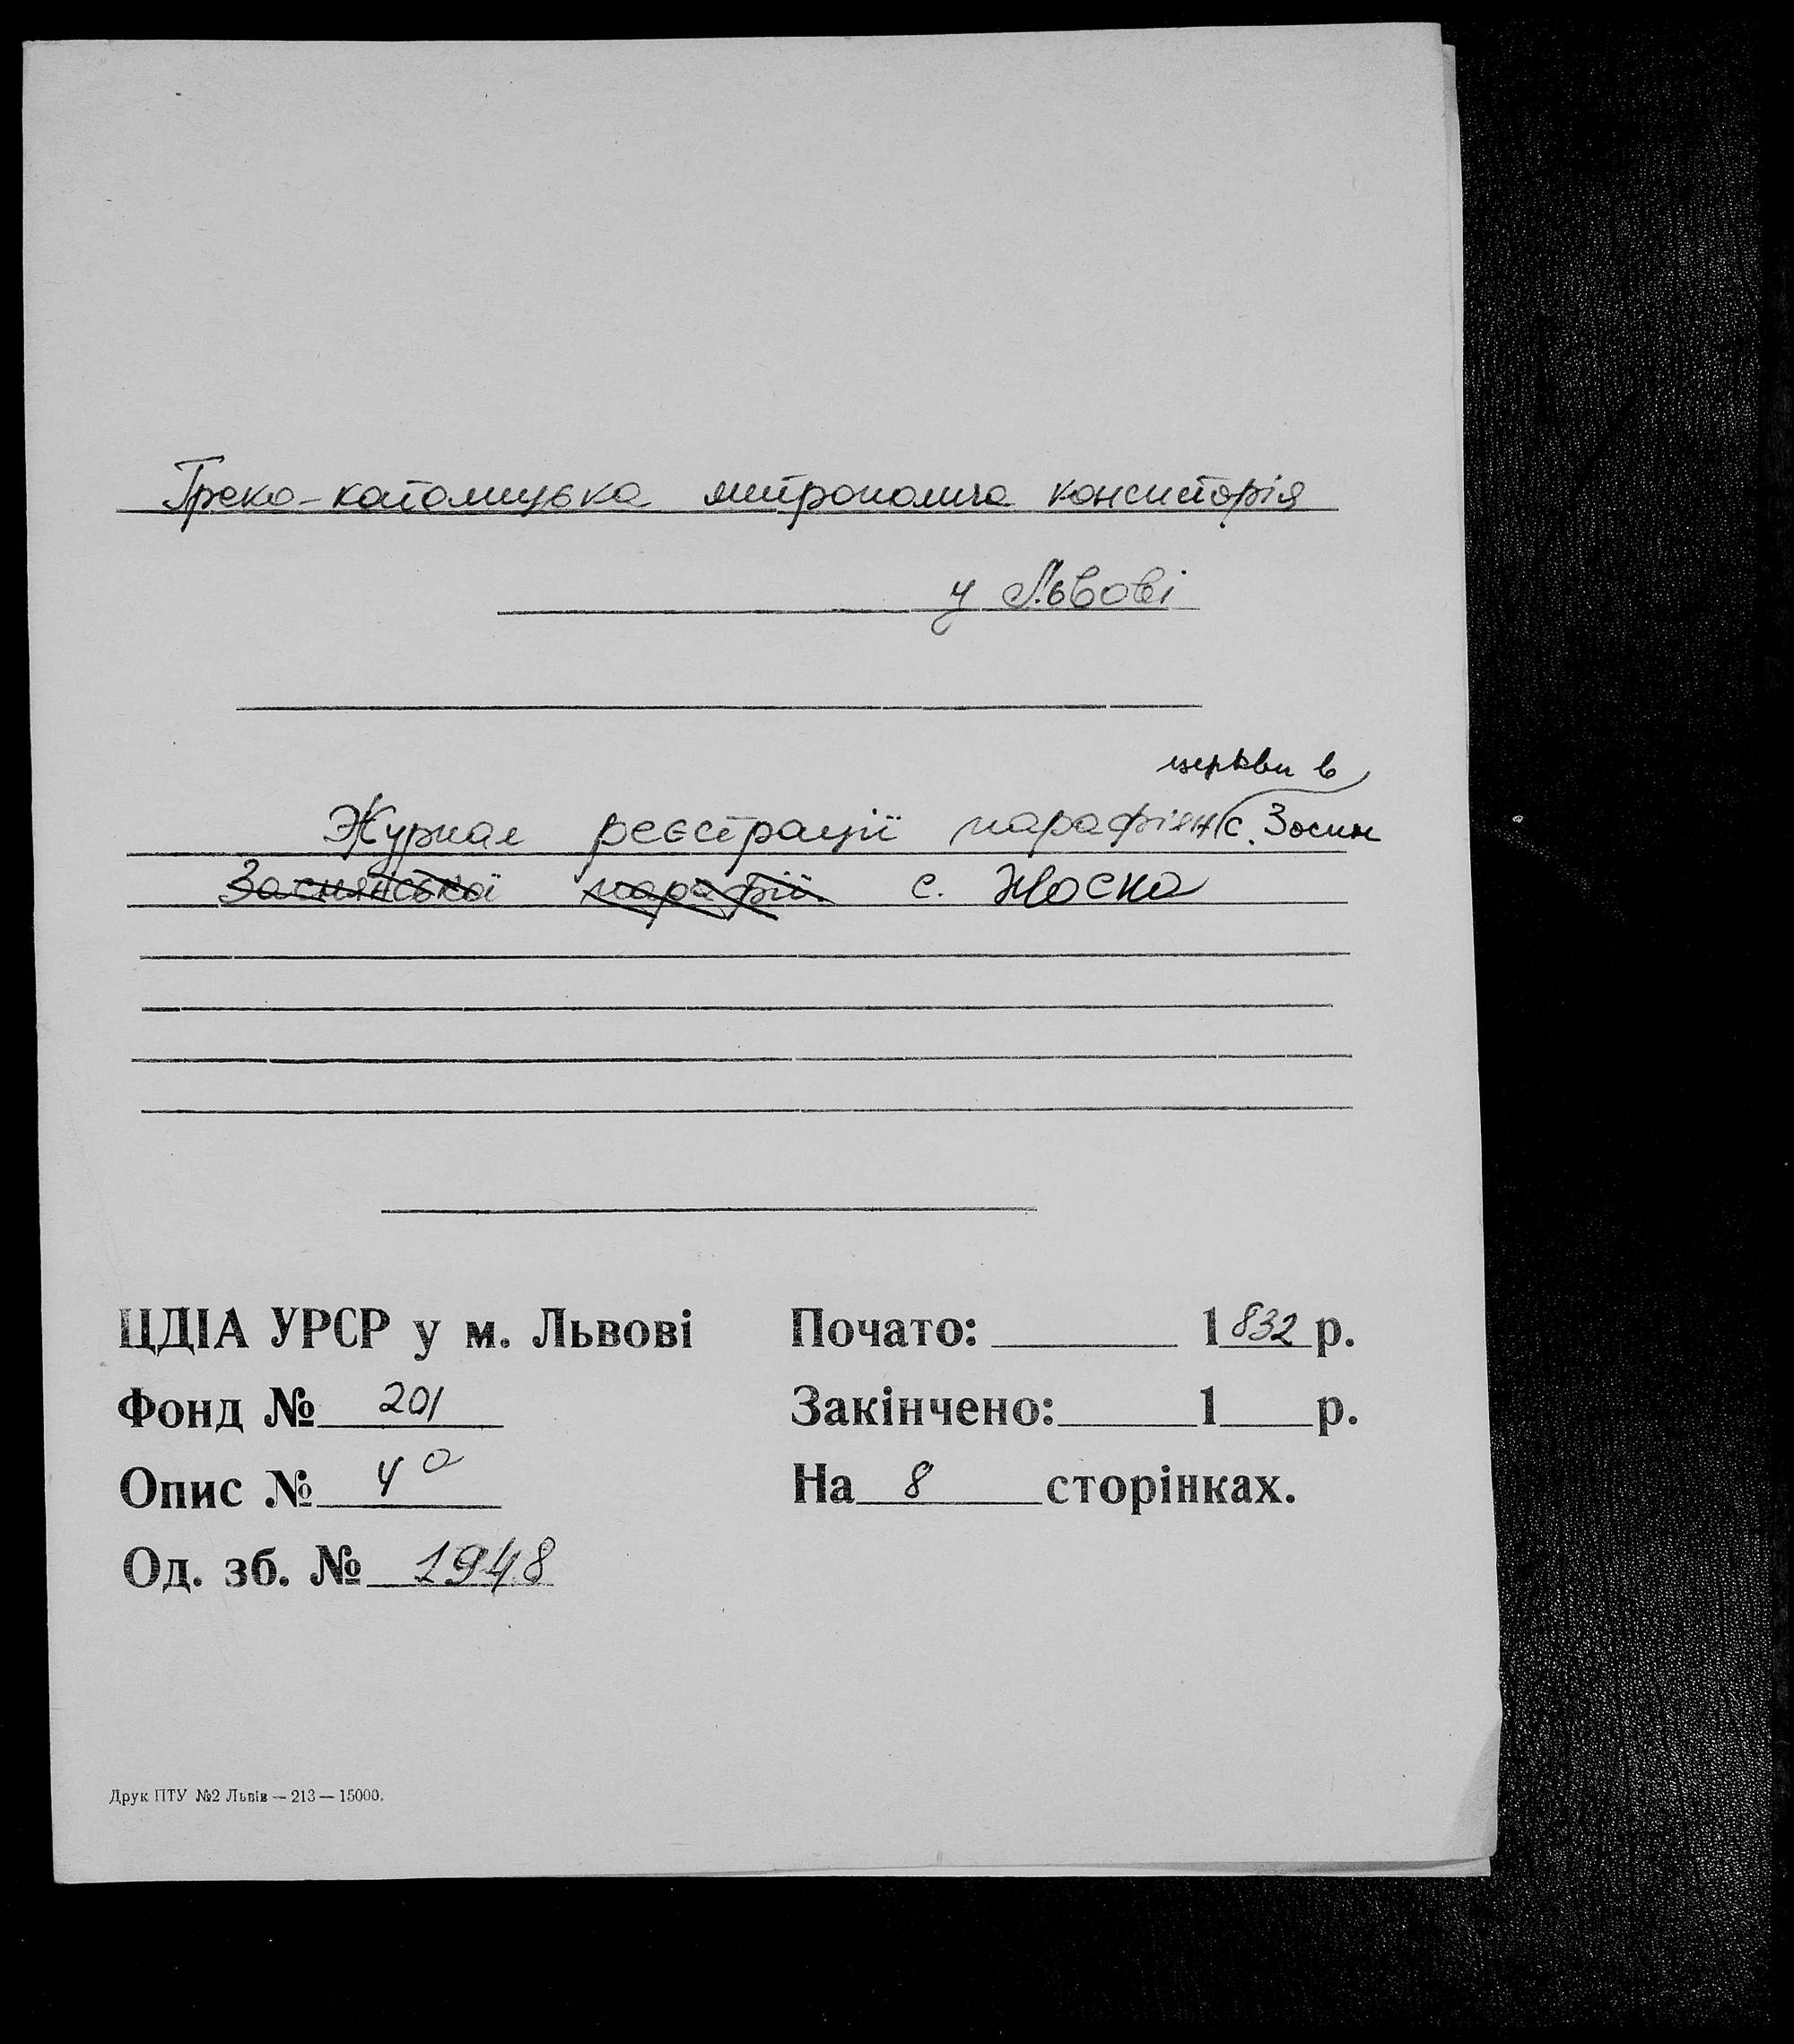 Греко-католицька митрополича консисторія
у Львові
церкви в
Журнал реєстрації парафіян с. Зосин
Заснянської парафії с. Жоско
ЦДІА УРСР у м. Львові
Почато: 1832 р.
Фонд № 201
Закінчено: 1 р.
Опис № 4а
На 8 сторінках.
Од. зб. № 1948
Друк ПТУ №2 Львів — 213 — 15000.